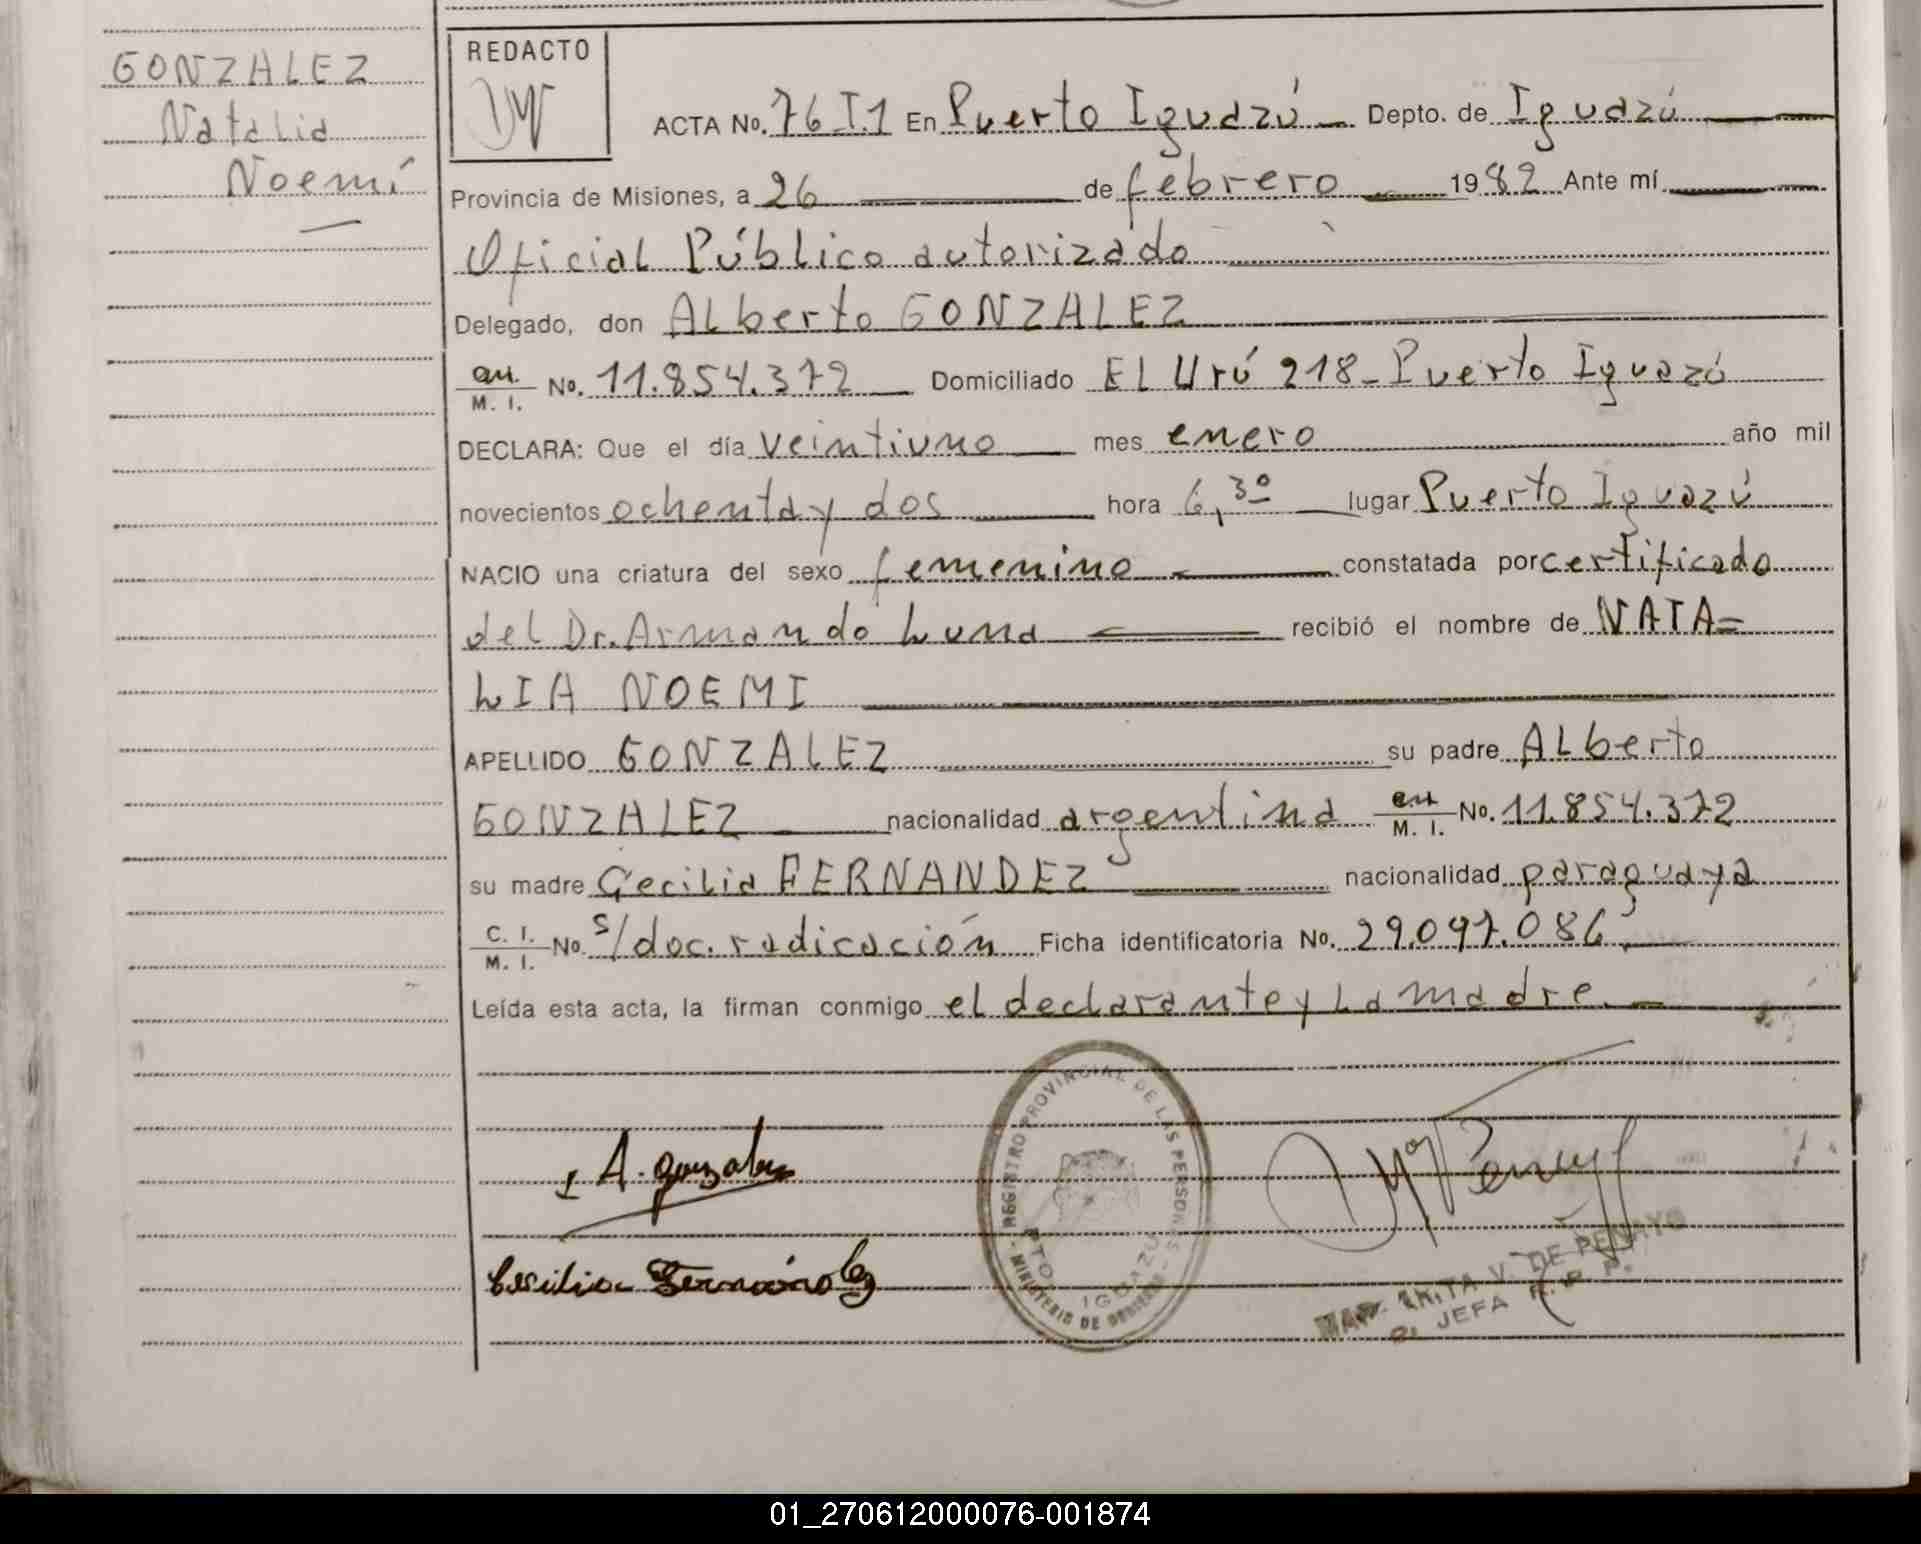 GONZALEZ
Natalia
Noemí
REDACTO
ACTA No. 76 T.1 En Puerto Iguazú Depto. de Iguazú
Provincia de Misiones, a 26 de febrero 1982 Ante mí
Oficial Público autorizado
Delegado, don Alberto GONZALEZ
M. I. No. 11.854.372 Domiciliado El Urú 218 - Puerto Iguazú
DECLARA: Que el día veintiuno mes enero año mil
novecientos ochenta y dos hora 6,30 lugar Puerto Iguazú
NACIO una criatura del sexo femenino constatada por certificado
del Dr. Armando Luna recibió el nombre de NATA=
LIA NOEMI
APELLIDO GONZALEZ su padre Alberto
GONZALEZ nacionalidad argentina M. I. No. 11.854.372
su madre Cecilia FERNANDEZ nacionalidad paraguaya
C. I. M. I. No. s/doc. radicación Ficha identificatoria No. 29.097.086
Leída esta acta, la firman conmigo el declarante y la madre.
REGISTRO PROVINCIAL DE LAS PERSONAS
PTO IGUAZU
MINISTERIO DE GOBIERNO
A. Gonzalez
Cecilia Fernández
V. DE PENAYO
JEFA R. P. P.
01_270612000076-001874